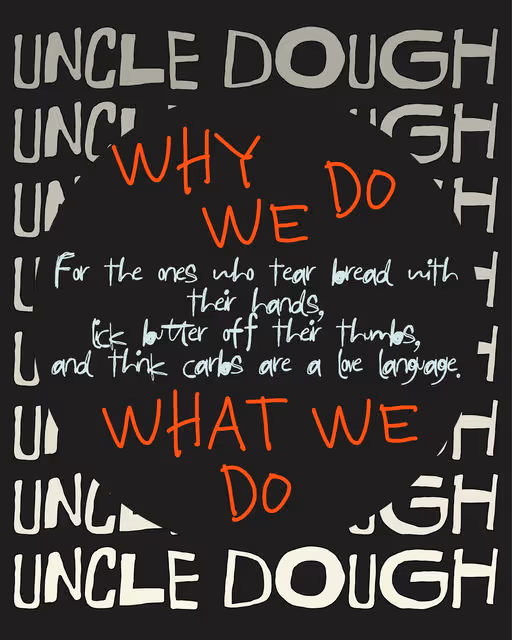 UNCLE DOUGH
UNC GH
WHY
WE DO
For the ones who tear bread with
their hands,
lick butter off their thumbs,
and think carbs are a love language.
WHAT WE
DO
UNC GH
UNCLE DOUGH